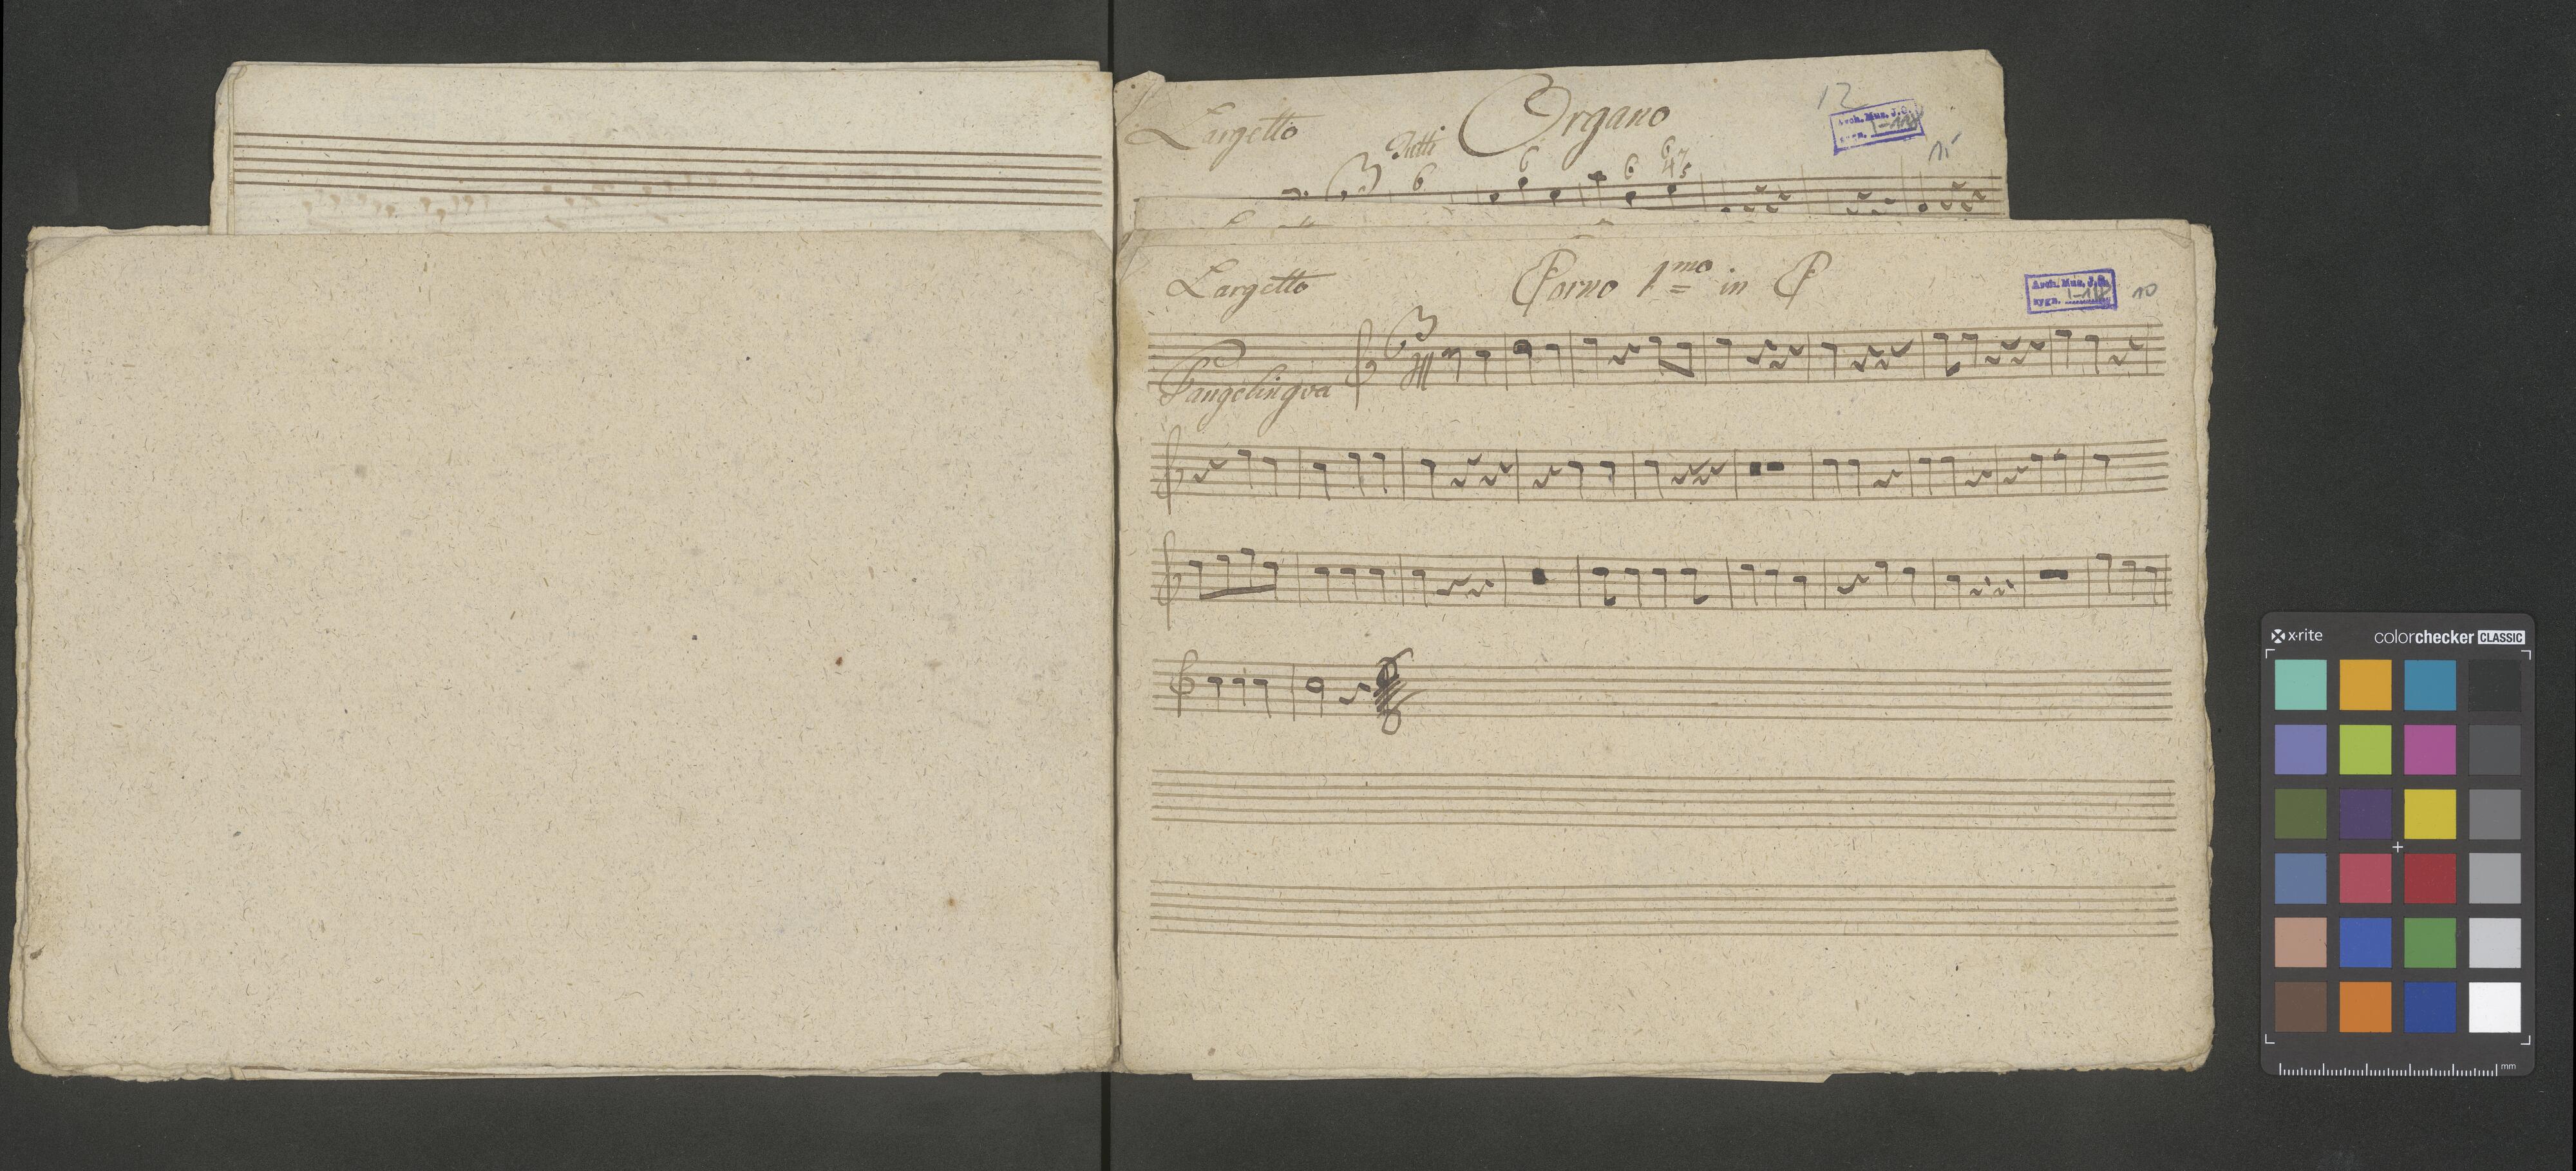 Largetto Organo 12
Tutti
Arch. Mus. J. G.
sygn. I-118
15
6 6 6
Largetto Corno 1mo in C
Arch. Mus. J. G.
sygn. I-118
10
Pangelingva
x·rite colorchecker CLASSIC
mm